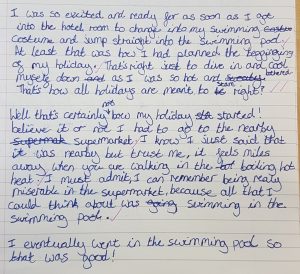 I was so excited and ready for as soon as I got
into the hotel room to change into my swimming
costume and jump straight into the swimming pool.
At least that was how I had planned the beginging
of my holiday. That's right I wet to dive in and cool
myself down as I was so hot and sweaty. bothered.
That's how all holidays are meant to start right?
Well that's certainly not how my holiday started!
believe it or not I had to go to the nearby
supermat supermarket. I know I just said that
it was nearby but trust me, it feels miles
away when you are walking in the boiling hot
heat. I must admit, I can remember being really
miserable in the supermarket, because all that I
could think about was going swimming in the
swimming pool.
I eventually went in the swimming pool so
that was good!